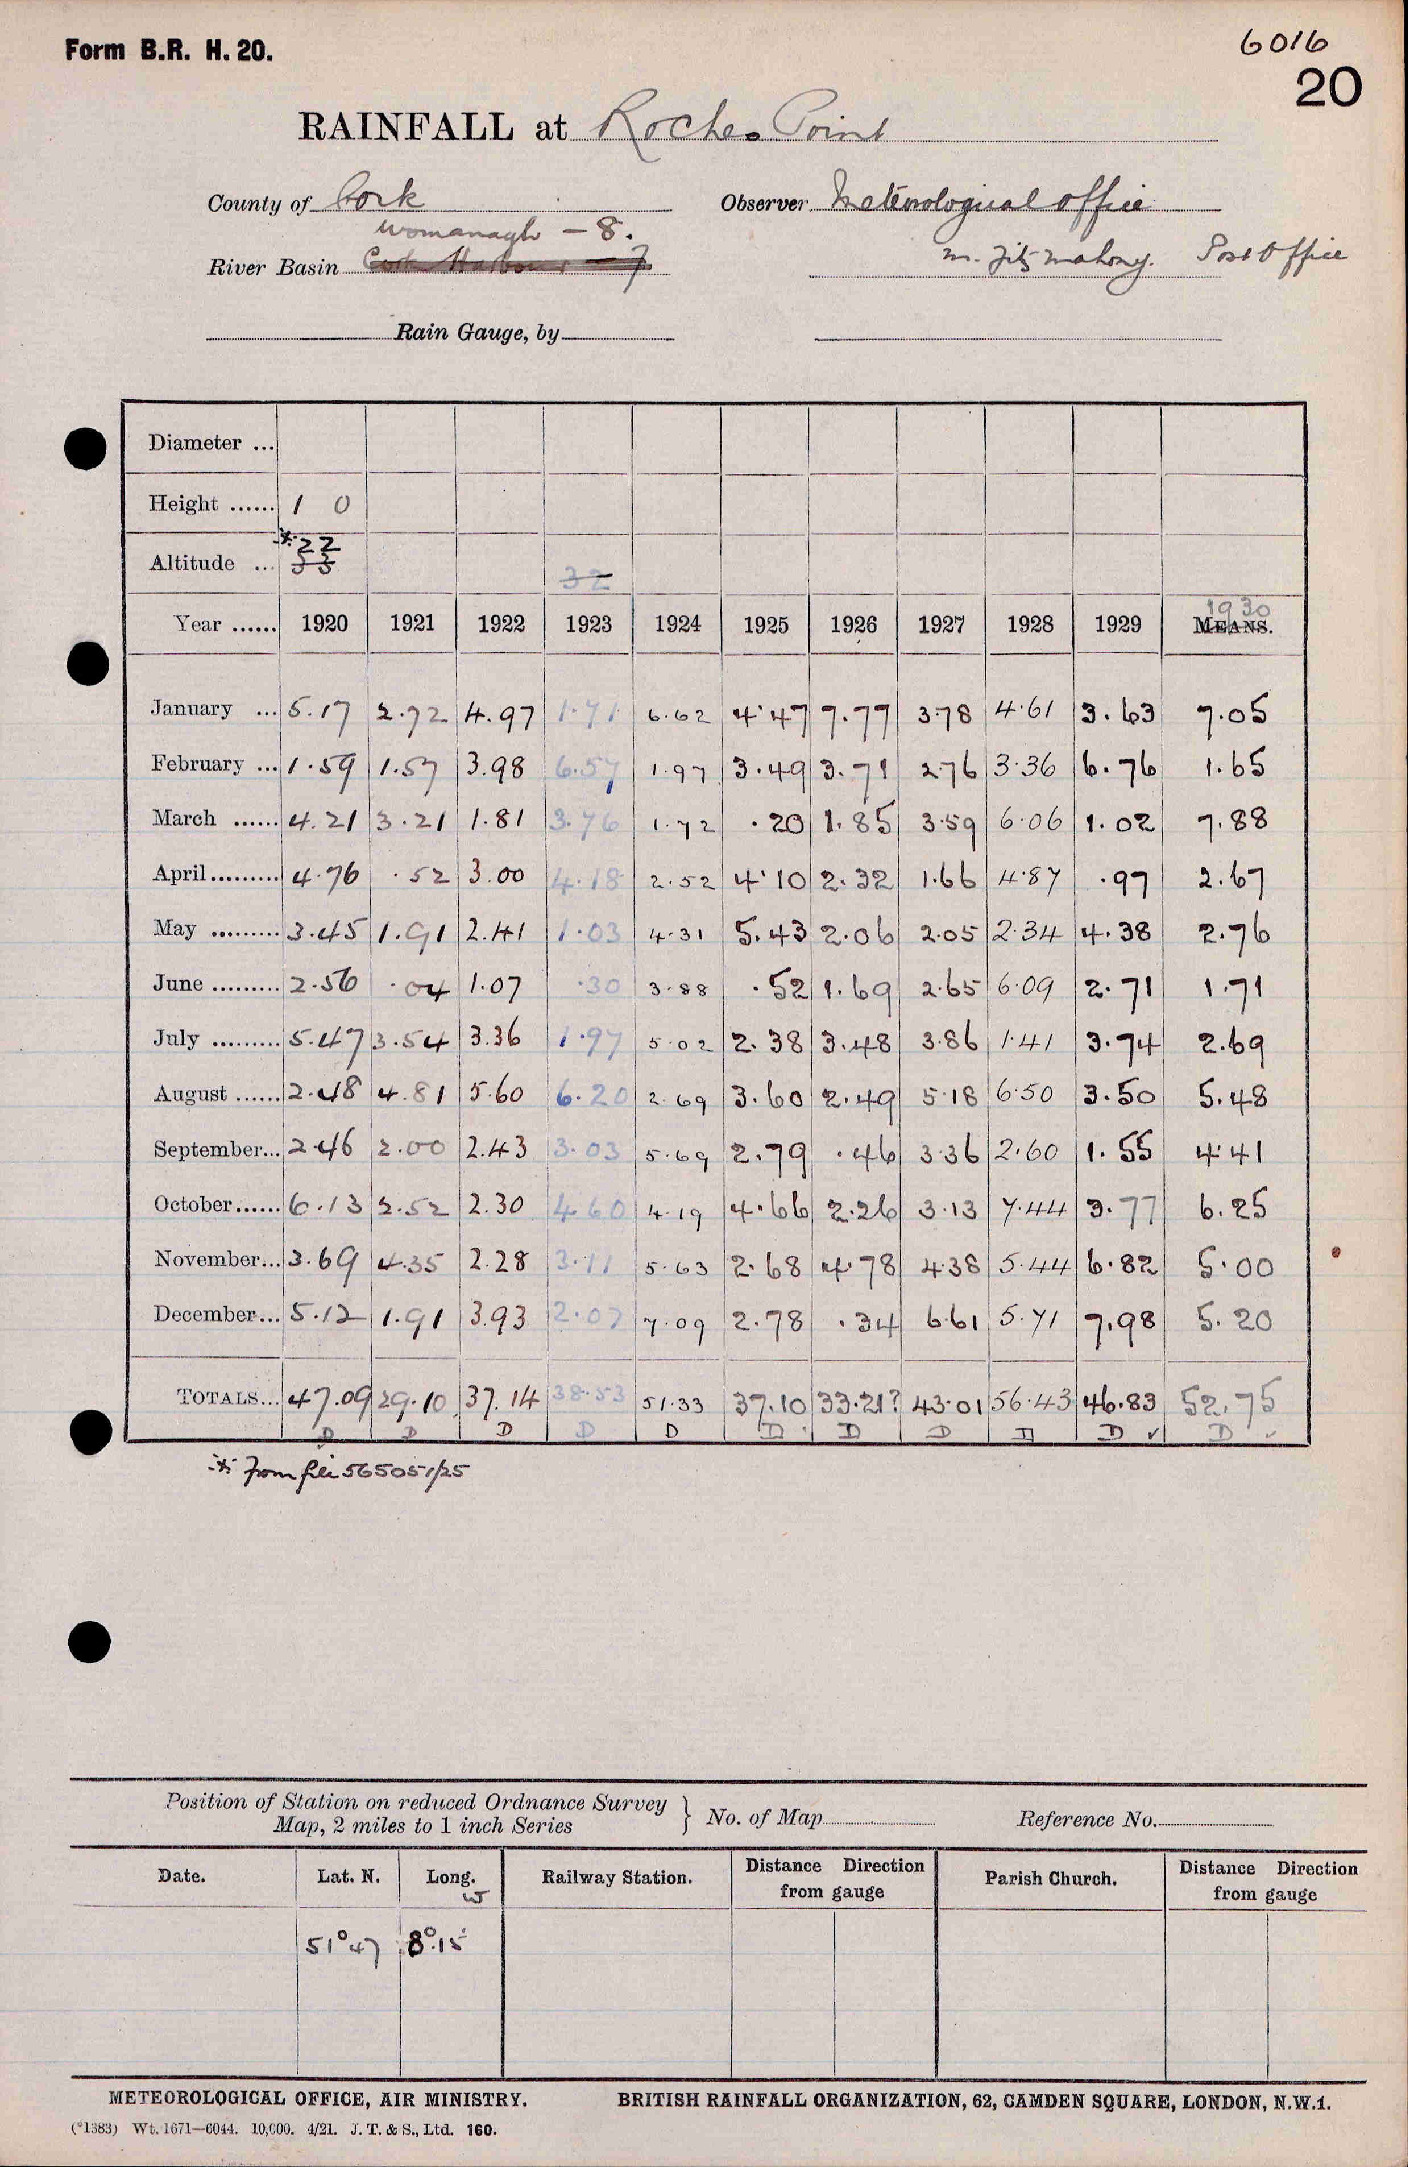 Form B.R. H. 20.
6016
20
RAINFALL at Roches Point
County of Cork
Observer Meteorological Office
Womanagh - 8.
River Basin Cork Harbour - 7
M. Fitzmahony. Post Office
Rain Gauge, by
Diameter ...
Height ...... 1 0
* 22
Altitude ... 33 32
1930
Year ...... 1920 1921 1922 1923 1924 1925 1926 1927 1928 1929 MEANS.
January ... 5.17 2.72 4.97 1.71 6.62 4.47 7.77 3.78 4.61 3.63 7.05
February ... 1.59 1.57 3.98 6.57 1.97 3.49 3.71 2.76 3.36 6.76 1.65
March ...... 4.21 3.21 1.81 3.76 1.72 .20 1.85 3.59 6.06 1.02 7.88
April ......... 4.76 .52 3.00 4.18 2.52 4.10 2.32 1.66 4.87 .97 2.67
May ......... 3.45 1.91 2.41 1.03 4.31 5.43 2.06 2.05 2.34 4.38 2.76
June ......... 2.56 .04 1.07 .30 3.88 .52 1.69 2.65 6.09 2.71 1.71
July ......... 5.47 3.54 3.36 1.97 5.02 2.38 3.48 3.86 1.41 3.74 2.69
August ...... 2.48 4.81 5.60 6.20 2.69 3.60 2.49 5.18 6.50 3.50 5.48
September... 2.46 2.00 2.43 3.03 5.69 2.79 .46 3.36 2.60 1.55 4.41
October...... 6.13 2.52 2.30 4.60 4.19 4.66 2.26 3.13 7.44 3.77 6.25
November... 3.69 4.35 2.28 3.11 5.63 2.68 4.78 4.38 5.44 6.82 5.00
December... 5.12 1.91 3.93 2.07 7.09 2.78 .34 6.61 5.71 7.98 5.20
TOTALS... 47.09 29.10 37.14 38.53 51.33 37.10 33.21? 43.01 56.43 46.83 52.75
D D D D D D D D D D ✓ D ✓
* From file 565051/25
Position of Station on reduced Ordnance Survey
Map, 2 miles to 1 inch Series
} No. of Map
Reference No.
Date. Lat. N. Long. W Railway Station. Distance Direction from gauge Parish Church. Distance Direction from gauge
51° 47 8° 15'
METEOROLOGICAL OFFICE, AIR MINISTRY. BRITISH RAINFALL ORGANIZATION, 62, CAMDEN SQUARE, LONDON, N.W.1.
(*1383) Wt. 1671—6044. 10,000. 4/21. J. T. & S., Ltd. 160.